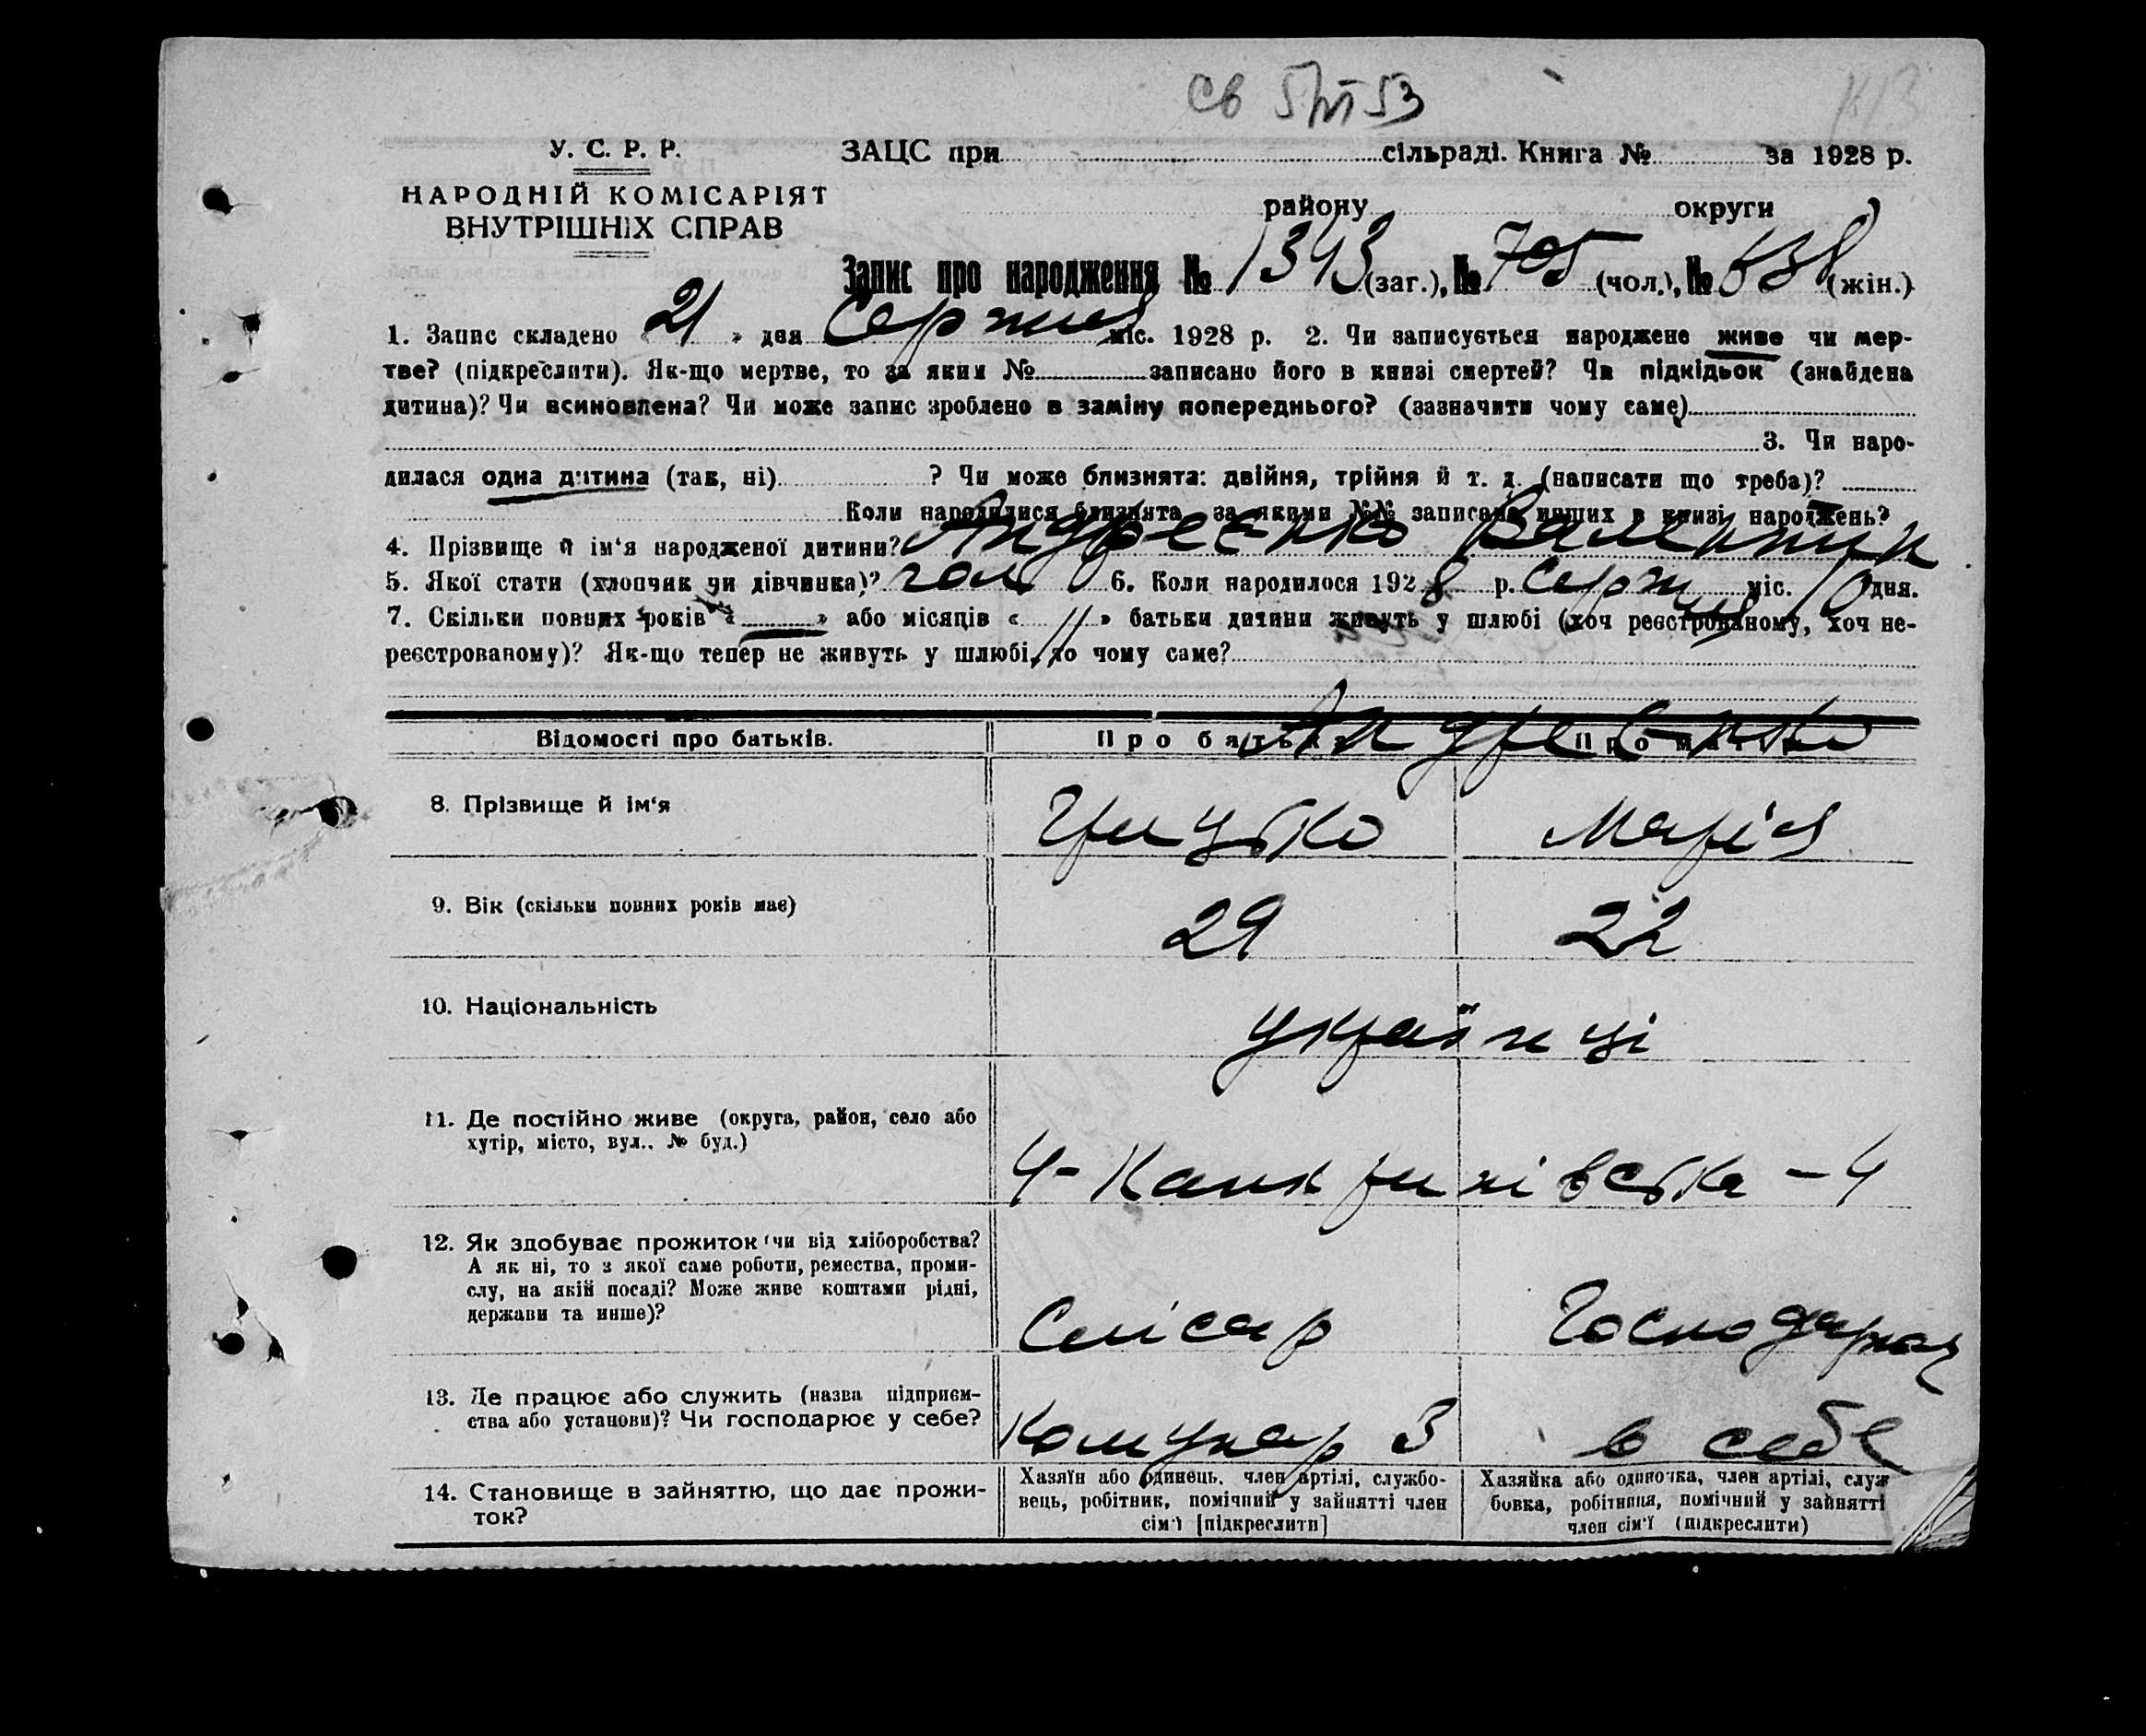 св 5/VI 53
У. С. Р. Р.
ЗАЦС при сільраді. Книга № за 1928 р.
НАРОДНІЙ КОМІСАРІЯТ
ВНУТРІШНІХ СПРАВ
району округи
Запис про народження № 1343 (заг.), № 705 (чол.), № 638 (жін.)
1. Запис складено « 21 » дня Серпня міс. 1928 р. 2. Чи записується народжене живе чи мер-
тве? (підкреслити). Як-що мертве, то за яким № записано його в книзі смертей? Чи підкідьок (знайдена
дитина)? Чи всиновлена? Чи може запис зроблено в заміну попереднього? (зазначити чому саме)
3. Чи наро-
дилася одна дитина (так, ні) ? Чи може близнята: двійня, трійня й т. д. (написати що треба)?
Коли народилися близнята, за якими №№ записано инших в книзі народжень?
4. Прізвище й ім‘я народженої дитини? Андреєнко Валентин
5. Якої стати (хлопчик чи дівчинка)? чол 6. Коли народилося 1928 р. серпня міс. 10 дня.
7. Скільки повних років « » або місяців « 11 » батьки дитини живуть у шлюбі (хоч реєстрованому, хоч не-
реєстрованому)? Як-що тепер не живуть у шлюбі, то чому саме?
Відомості про батьків. Про батька Про матір
Андреєнко
8. Прізвище й ім‘я Грицько Марія
9. Вік (скільки повних років має) 29 22
10. Національність українці
11. Де постійно живе (округа, район, село або
хутір, місто, вул.. № буд.)
4-Кантринівська – 4
12. Як здобуває прожиток (чи від хліборобства?
А як ні, то з якої саме роботи, ремества, проми-
слу, на якій посаді? Може живе коштами рідні,
держави та инше)?
Слісар Господарює
13. Де працює або служить (назва підприєм-
ства або установи)? Чи господарює у себе?
Комунар З в себе
14. Становище в зайняттю, що дає прожи-
ток?
Хазяїн або одинець, член артілі, службо-
вець, робітник, помічний у зайнятті член
сім‘ї [підкреслити]
Хазяйка або одиночка, член артілі, служ
бовка, робітниця, помічний у зайнятті
член сім‘ї (підкреслити)